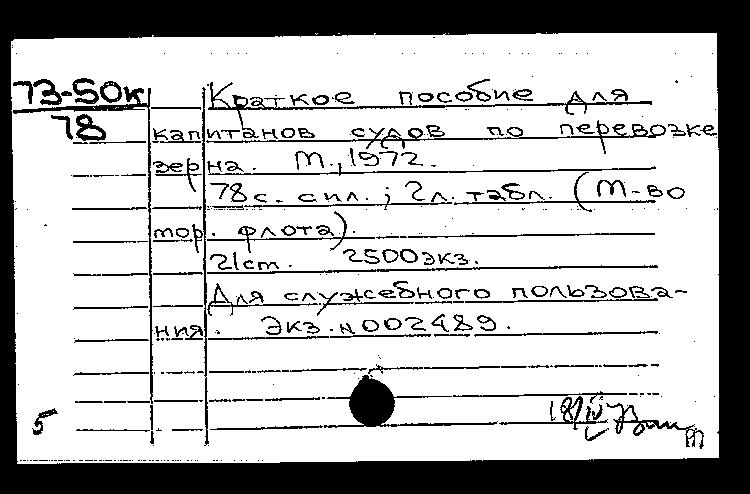 73-50к
78
Краткое пособие для
капитанов судов по перевозке
зерна. М., 1972.
78 с. с ил.; 2 л. табл. (М-во
мор. флота).
21 см. 2500 экз.
Для служебного пользова-
ния. Экз. N 002489.
5
18/IV
m